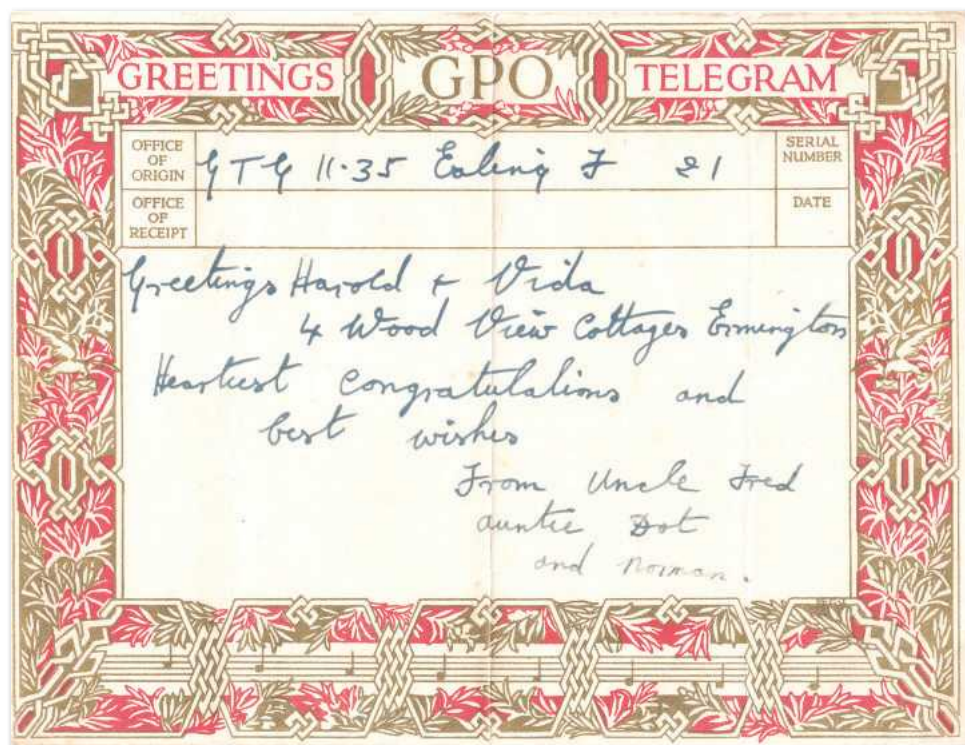 GREETINGS GPO TELEGRAM
OFFICE OF ORIGIN
GTG 11·35 Ealing F 21
SERIAL NUMBER
OFFICE OF RECEIPT
DATE
Greetings Harold + Vida
4 Wood View Cottages Ermington
Heartiest congratulations and
best wishes
From Uncle Fred
auntie Dot
and Norman.